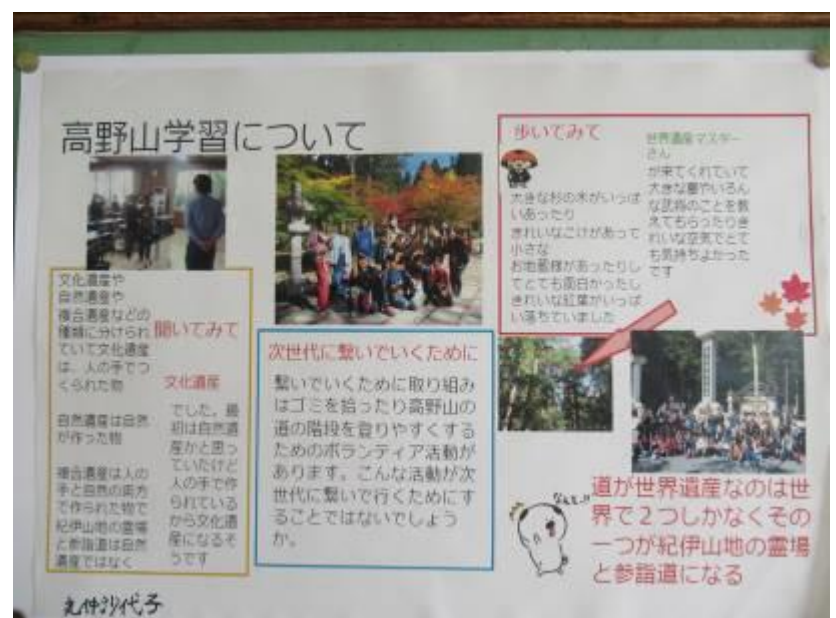 高野山学習について
文化遺産や
自然遺産や
複合遺産などの
種類に分けられ
ていて文化遺産
は、人の手でつ
くられた物
自然遺産は自然
が作った物
複合遺産は人の
手と自然の両方
で作られた物で
紀伊山地の霊場
と参詣道は自然
遺産ではなく
聞いてみて
文化遺産
でした。最
初は自然遺
産かと思っ
ていたけど
人の手で作
られている
から文化遺
産になるそ
うです
次世代に繋いでいくために
繋いでいくために取り組み
はゴミを拾ったり高野山の
道の階段を登りやすくする
ためのボランティア活動が
あります。こんな活動が次
世代に繋いで行くためにす
ることではないでしょう
か。
歩いてみて
大きな杉の木がいっぱ
いあったり
きれいなこけがあって
小さな
お地蔵様があったりし
てとても面白かったし
きれいな紅葉がいっぱ
い落ちていました
世界遺産マスター
さん
が来てくれていて
大きな墓やいろん
な武将のことを教
えてもらったりき
れいな空気でとて
も気持ちよかった
です
なんと…!!
道が世界遺産なのは世
界で2つしかなくその
一つが紀伊山地の霊場
と参詣道になる